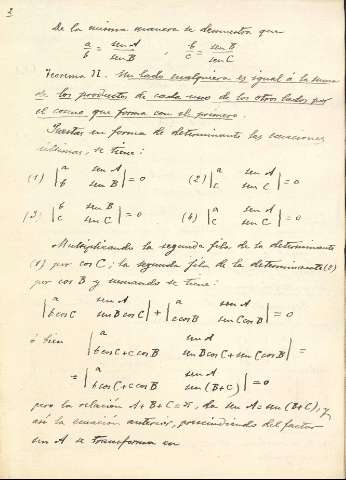 2
De la misma manera se demuestra que
a/b = sen A/sen B , b/c = sen B/sen C
Teorema II. Un lado cualquiera es igual á la suma
de los productos de cada uno de los otros lados por
el coseno que forma con el primero.
Puestas en forma de determinante las ecuaciones
últimas, se tiene:
(1) |a sen A; b sen B| = 0 (2) |a sen A; c sen C| = 0
(3) |b sen B; c sen C| = 0 (4) |a sen A; c sen C| = 0
Multiplicando la segunda fila de la determinante
(1) por cos C; la segunda fila de la determinante (2)
por cos B y sumando se tiene:
|a sen A; b cos C sen B cos C| + |a sen A; c cos B sen C cos B| = 0
ó bien |a sen A; b cos C + c cos B sen B cos C + sen C cos B| =
= |a sen A; b cos C + c cos B sen (B+C)| = 0
pero la relación A+B+C=π, da sen A = sen (B+C), y
así la ecuación anterior, prescindiendo del factor
sen A se transforma en